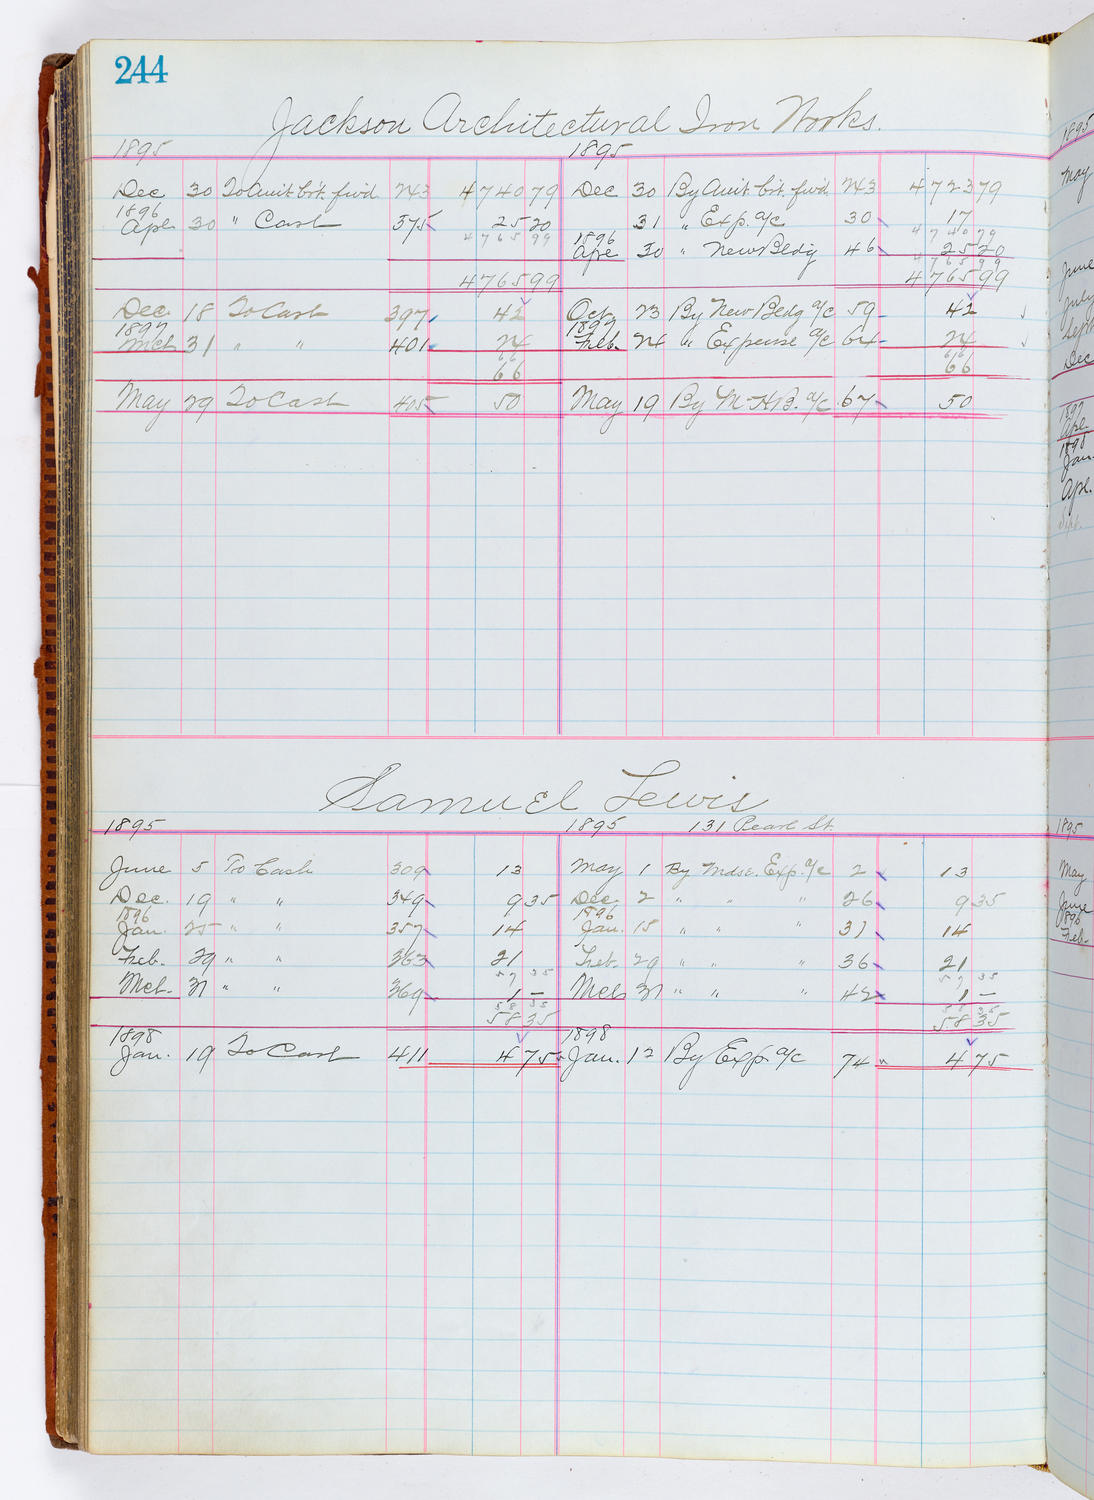 244
Jackson Architectural Iron Works.
1895 1895
Dec 30 To Amt brt. fwd 243 4740 79 Dec 30 By Amt brt. fwd 243 4723 79
1896
Apl 30 " Cash 375 25 20 31 " Exp. a/c 30 17
4765 99 4740 79
1896
Apl 30 " New Bldg 46 25 20
4765 99
4765 99 4765 99
Dec. 18 To Cash 397 42 Oct. 23 By New Bldg a/c 59 42
1897 1897
Mch 31 " " 401 24 Feb. 24 " Expense a/c 64 24
66 66
66 66
May 29 To Cash 405 50 May 19 By N.H.B. a/c 67 50
Samuel Lewis
1895 1895 131 Pearl St.
June 5 To Cash 309 13 May 1 By Mdse. Exp. a/c 2 13
Dec. 19 " " 349 9 35 Dec. 2 " " " 26 9 35
1896 1896
Jan. 25 " " 357 14 Jan. 15 " " " 31 14
Feb. 29 " " 363 21 Feb. 29 " " " 36 21
57 35 57 35
Mch. 31 " " 369 1 – Mch 31 " " " 42 1 –
58 35 58 35
58 35 58 35
1898 1898
Jan. 19 To Cash 411 4 75 Jan. 12 By Exp. a/c 74 4 75
1895
May
June
July
Sept
Dec
1897
Apl.
1898
Jan.
Apl.
Sept.
1895
May
June
1896
Feb.